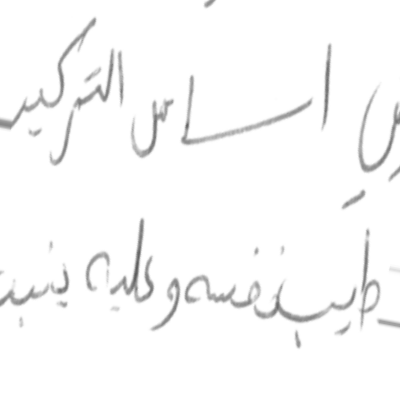 اساس التركيب
طيب نفسه وعليه ينبـ